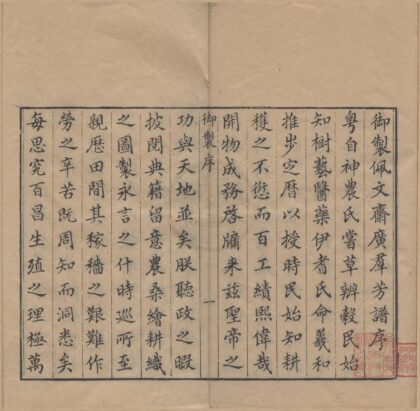 御製佩文齋廣羣芳譜序
粵自神農氏嘗草辨穀民始
知樹藝醫藥伊耆氏命羲和
推步定曆以授時民始知耕
穫之不愆而百工績熙偉哉
開物成務啓牖来茲聖帝之
御製序 一
功與天地並矣朕聽政之暇
披閱典籍留意農桑繪耕織
之圖製永言之什時巡所至
親歷田間其稼穡之艱難作
勞之辛苦既周知而洞悉矣
每思究百昌生殖之理極萬